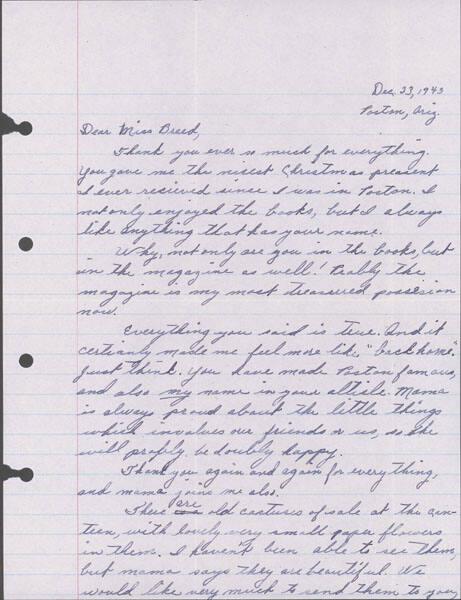 Dec. 23, 1943
Poston, Ariz.
Dear Miss Breed,
Thank you ever so much for everything.
You gave me the nisest Christmas present
I ever recieved since I was in Poston. I
not only enjoyed the books, but I always
like anything that has your name.
Why, not only are you in the books, but
in the magazine as well! Really the
magazine is my most treasured possesion
now.
Everything you said is true. And it
certianly made me feel more like "back home".
Just think. You have made Poston famous,
and also my name in your alticle. Mama
is always proud about the little things
which involves our friends or us, so she
will probly be doubly happy.
Thank you again and again for everything,
and mama joins me also.
There are old of sale at the can-
teen, with lovely very small paper flowers
in them. I haven't been able to see them,
but mama says they are beautiful. We
would like very much to send them to you,